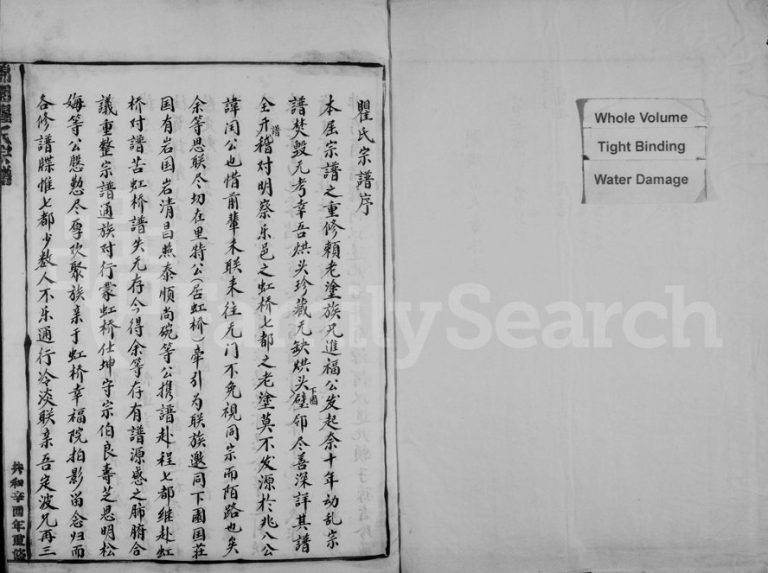 瞿氏宗譜序
本屆宗譜之重修賴老塗族兄進福公发起余十年动乱宗
譜焚毀无考幸吾烘头珍藏无缺烘头璧邻尽善深詳其譜
下圆
全开稽对明察乐邑之虹桥七都之老塗莫不发源於兆八公
譜
諱闰公也惜前輩未联来往无门不免視同宗而陌路也矣
余等思联尽切在里特公(居虹桥)牵引为联族邀同下圆国荘
国有岩国岩清昌熙泰順尚碗等公携譜赴程七都继赴虹
桥对譜苦虹桥譜失无存今得余等存有譜源感之肺腑合
議重整宗譜通族对行蒙虹桥仕坤守宗伯良壽芝恩明松
海等公慇懃尽厚欢聚族亲于虹桥幸福院拍影留念归而
各修譜牒惟七都少数人不乐通行冷淡联亲吾定波兄再三
氏宗譜
共和辛酉年重修
Whole Volume
Tight Binding
Water Damage
FamilySearch